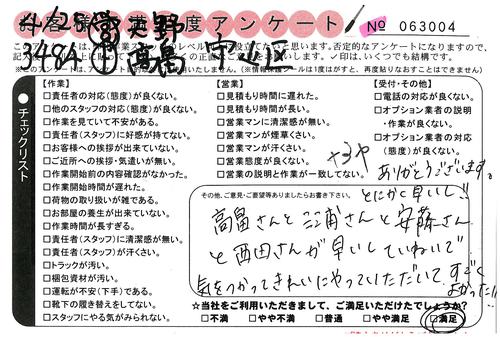 お客様満足度アンケート No 063004
4/28 営 天野
348A 高畠 守山区
●チェックリスト
【作業】
□責任者の対応(態度)が良くない。
□他のスタッフの対応(態度)が良くない。
□作業を見ていて不安がある。
□責任者(スタッフ)に好感が持てない。
□お客様への挨拶が出来ていない。
□ご近所への挨拶・気遣いが無い。
□作業開始前の内容確認がなかった。
□作業開始時間が遅れた。
□荷物の取り扱いが雑である。
□お部屋の養生が出来ていない。
□作業時間が長すぎる。
□責任者(スタッフ)に清潔感が無い。
□責任者(スタッフ)が汗くさい。
□トラックが汚い。
□梱包資材が汚い。
□運転が不安(下手)である。
□靴下の履き替えをしてない。
□スタッフにやる気がみられない。
【営業】
□見積もり時間に遅れた。
□見積もり時間が長い。
□営業マンに清潔感が無い。
□営業マンが煙草くさい。
□営業マンが汗くさい。
□営業態度が良くない。
□営業の説明と作業が一致してない。
【受付・その他】
□電話の対応が良くない。
□オプション業者の説明
・作業が良くない。
□オプション業者の対応
(態度)が良くない。
ありがとうございます。
とにかく早いし!!
その他、ご意見・ご要望等ありましたらお書き下さい。
高畠さんと三浦さんと安藤さん
と西田さんが早いしていねいで
気をつかってきれいにやっていただいて、すごく
よかった!!
☆当社をご利用いただきまして、ご満足いただけたでしょうか?
□不満 □やや不満 □普通 □やや満足 □満足